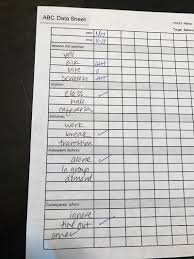 ABC Data Sheet
Child's Name
Target Behavior
Date 1/17
Time
Behavior
yell
kick
bite
scratch
class
hall
cafeteria
Activities
work
break
transition
Antecedent (before)
alone
in group
demand
Consequence (after)
ignore
time out
other